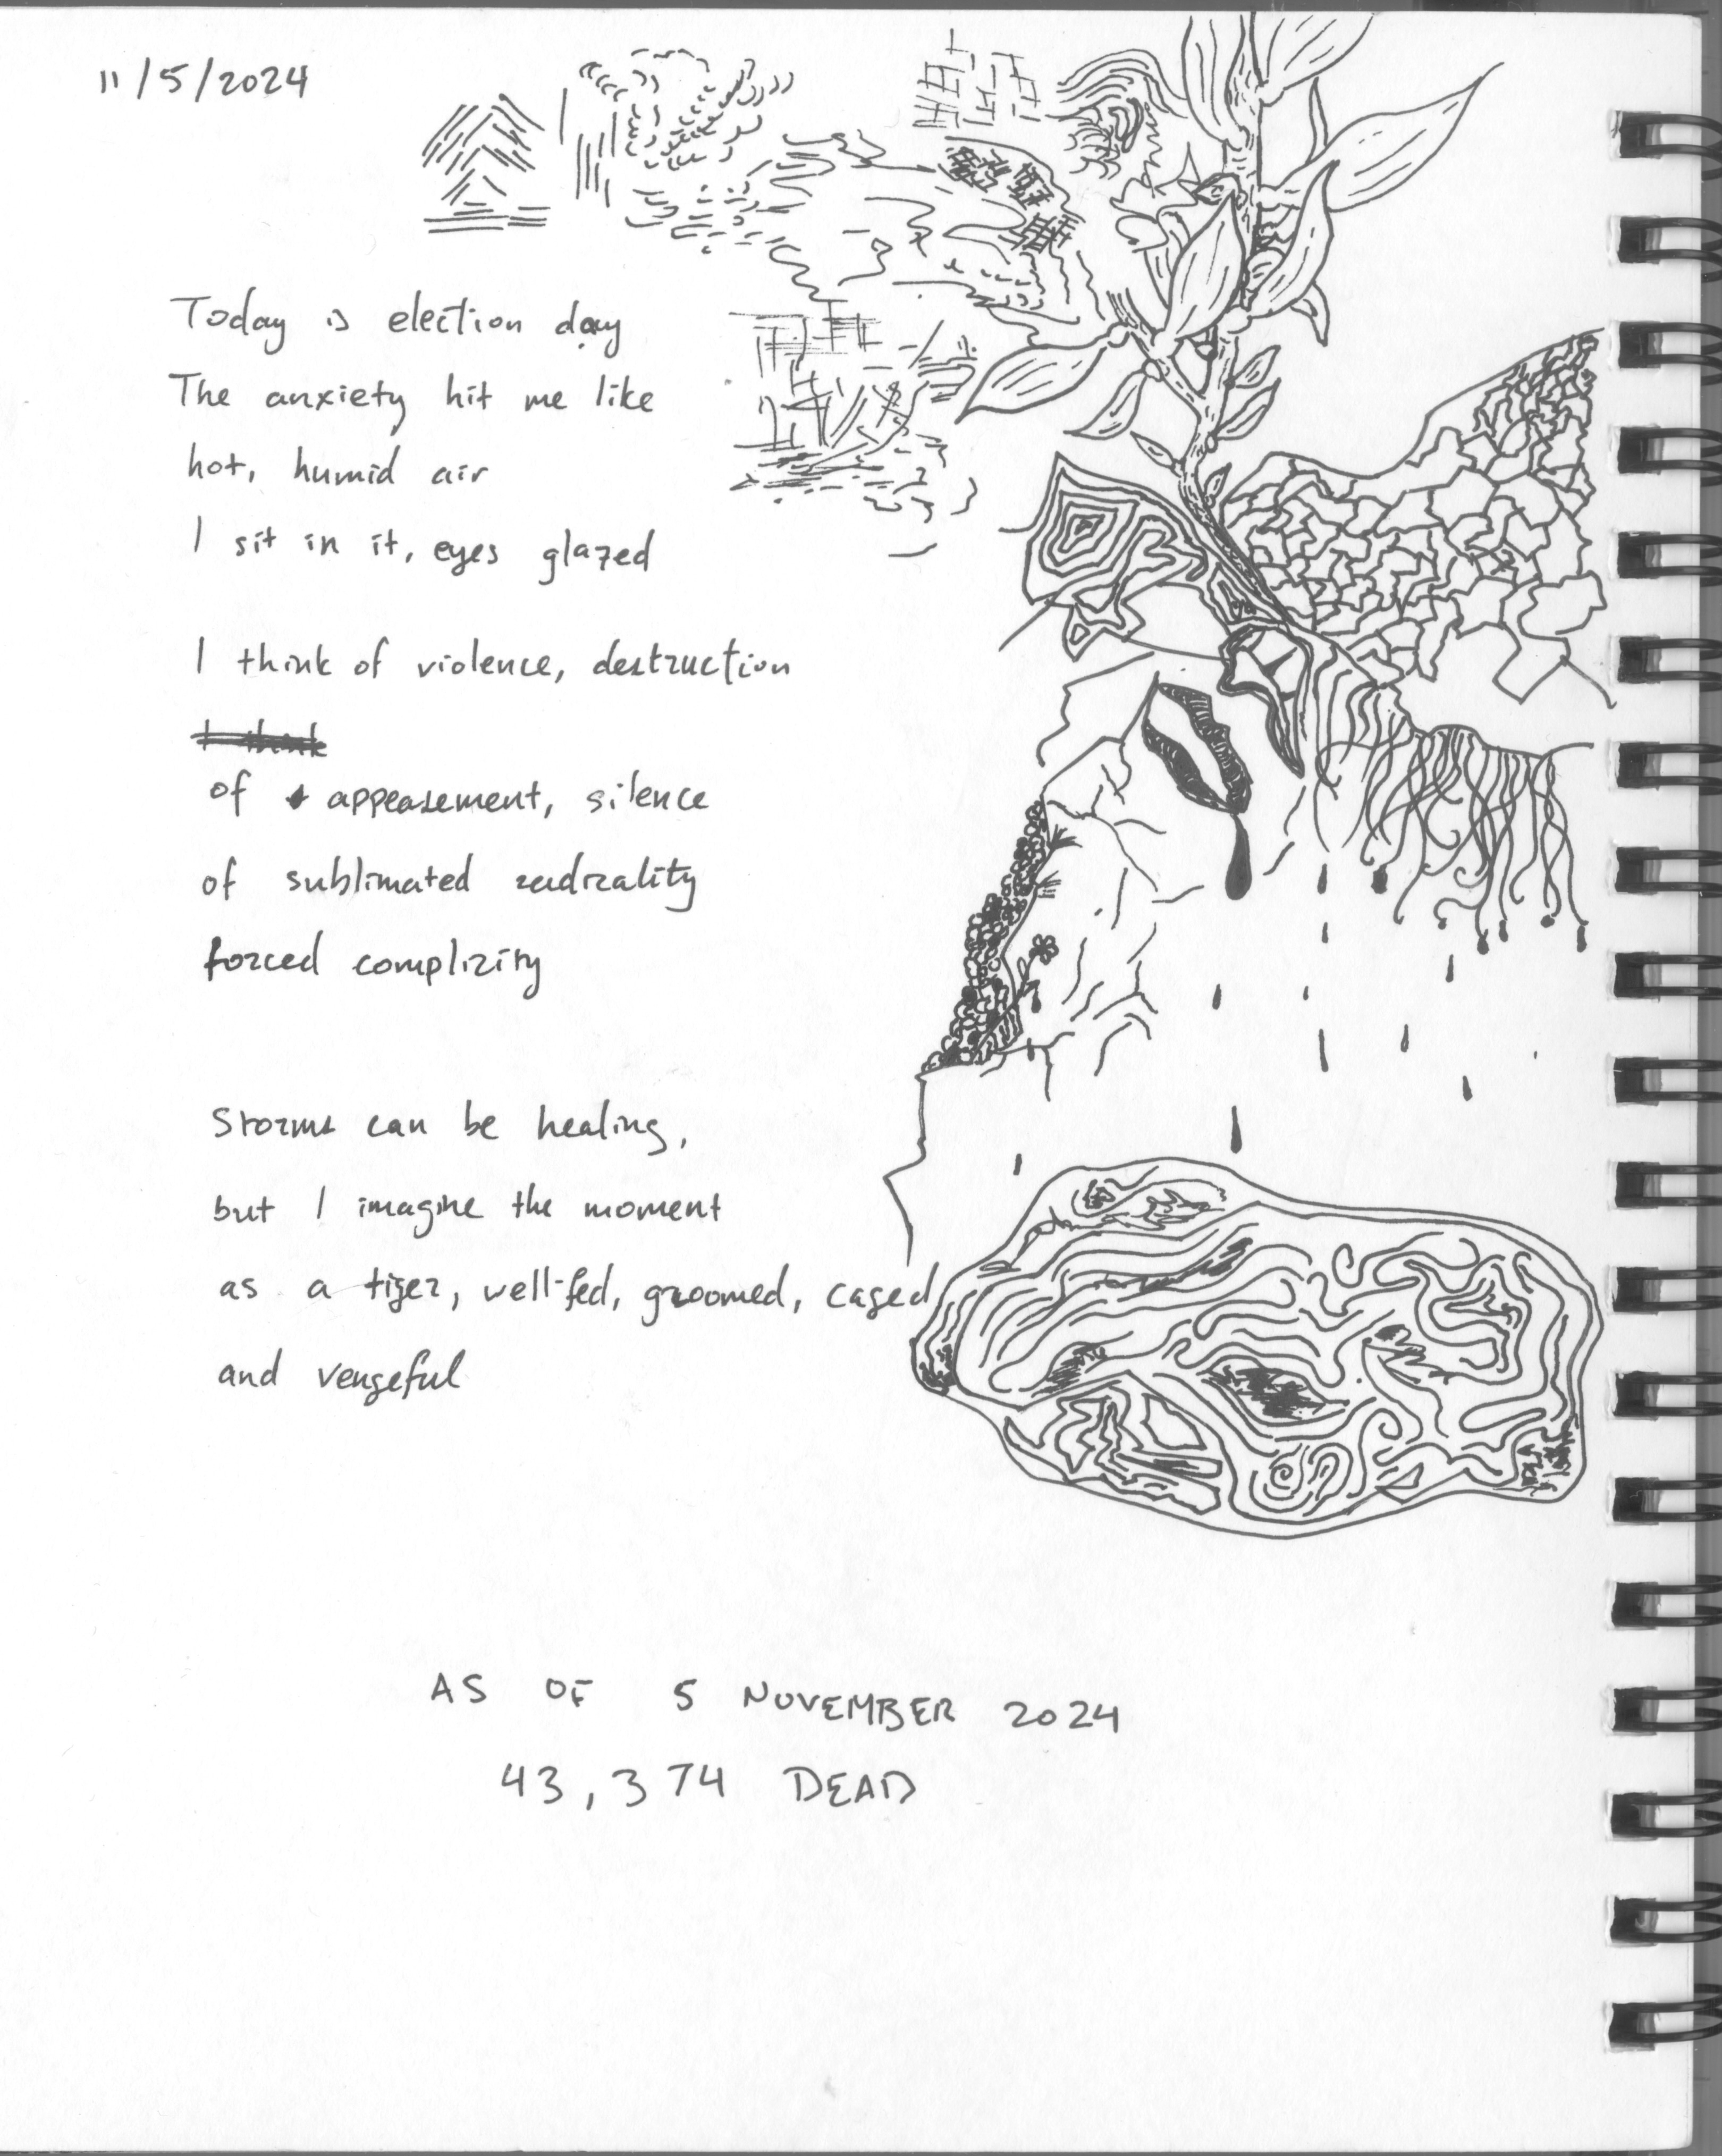 11/5/2024
Today is election day
The anxiety hit me like
hot, humid air
I sit in it, eyes glazed
I think of violence, destruction
I think
of appeasement, silence
of sublimated radicality
forced complicity
Storms can be healing,
but I imagine the moment
as a tiger, well-fed, groomed, caged
and vengeful
AS OF 5 NOVEMBER 2024
43,374 DEAD